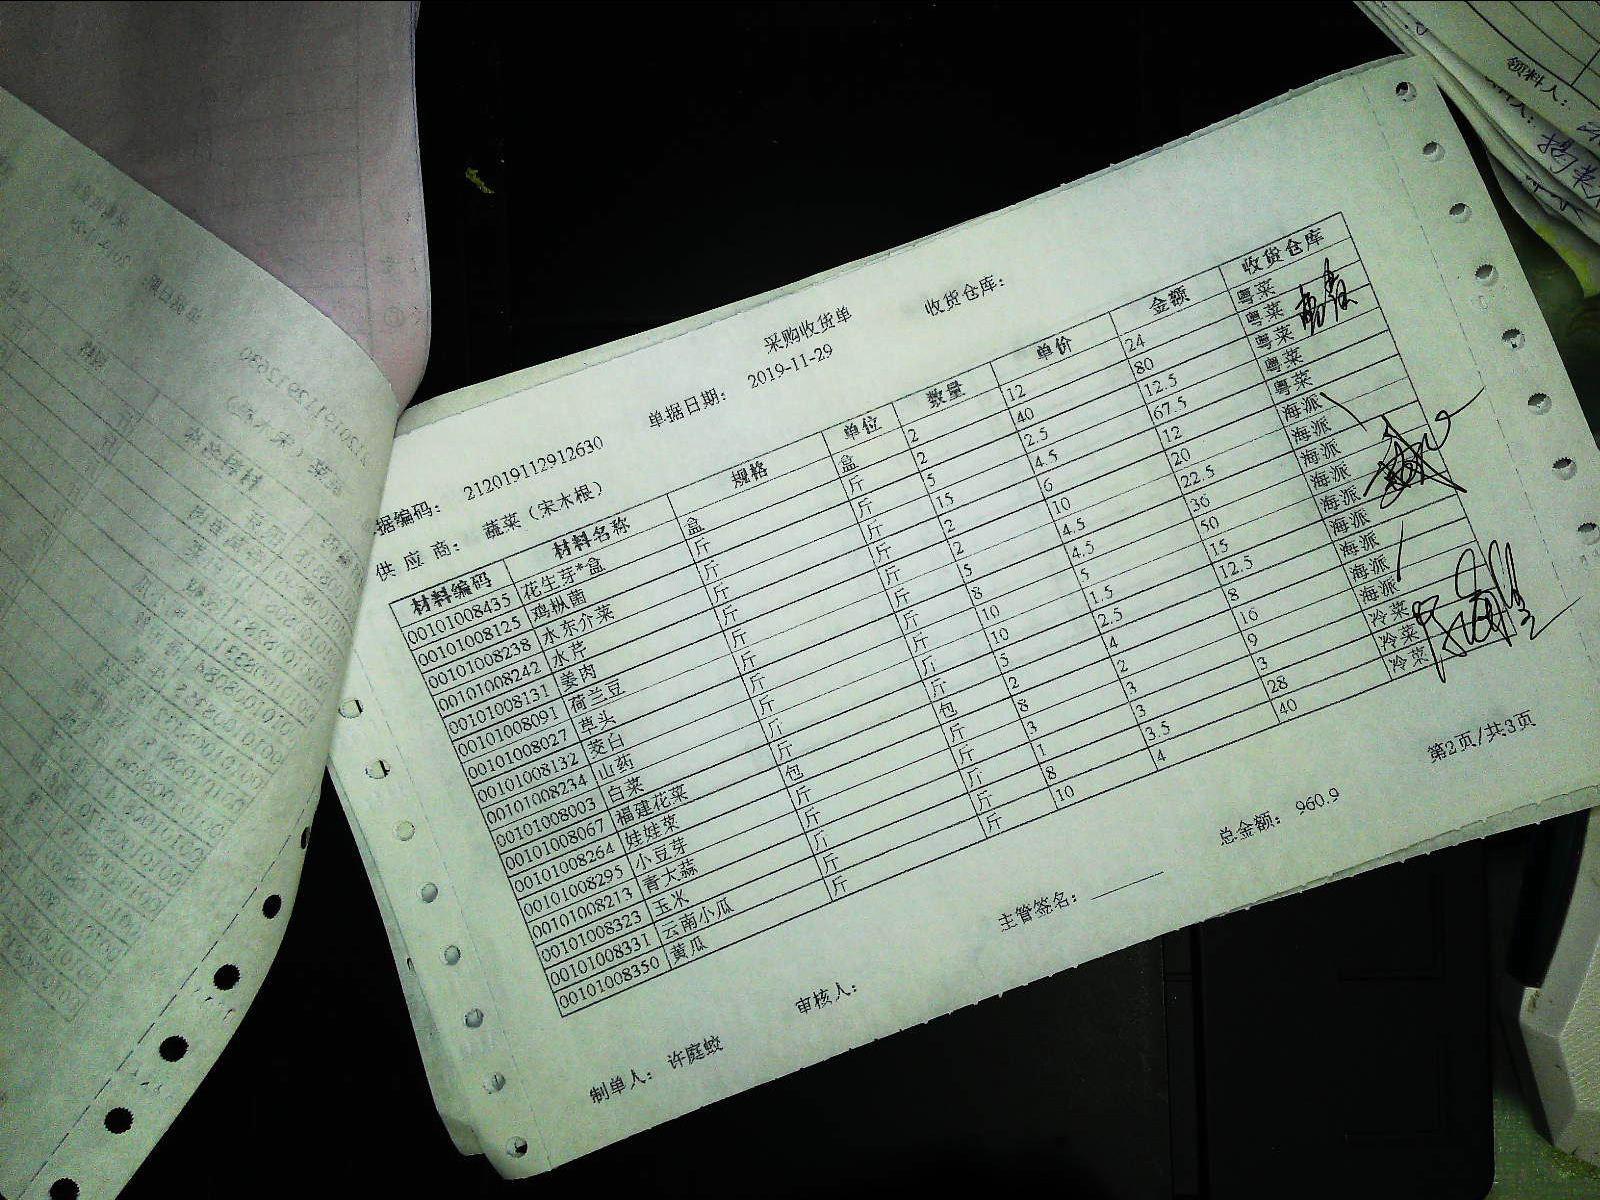 采购收货单
单据编码： 212019112912630 单据日期： 2019-11-29 收货仓库：
供 应 商： 蔬菜（宋木根）
材料编码 材料名称 规格 单位 数量 单价 金额 收货仓库
00101008435 花生芽*盒 盒 盒 2 12 24 粤菜
00101008125 鸡枞菌 斤 斤 2 40 80 粤菜
00101008238 水东介菜 斤 斤 5 2.5 12.5 粤菜
00101008242 水芹 斤 斤 15 4.5 67.5 粤菜
00101008131 姜肉 斤 斤 2 6 12 粤菜
00101008091 荷兰豆 斤 斤 2 10 20 海派
00101008027 草头 斤 斤 5 4.5 22.5 海派
00101008132 茭白 斤 斤 8 4.5 36 海派
00101008234 山药 斤 斤 10 5 50 海派
00101008003 白菜 斤 斤 10 1.5 15 海派
00101008067 福建花菜 斤 斤 5 2.5 12.5 海派
00101008264 娃娃菜 包 包 2 4 8 海派
00101008295 小豆芽 斤 斤 8 2 16 海派
00101008213 青大蒜 斤 斤 3 3 9 海派
00101008323 玉米 斤 斤 1 3 3 冷菜
00101008331 云南小瓜 斤 斤 8 3.5 28 冷菜
00101008350 黄瓜 斤 斤 10 4 40 冷菜
第2页/共3页
总金额： 960.9
制单人： 许庭蛟 审核人： 主管签名：
领料人：